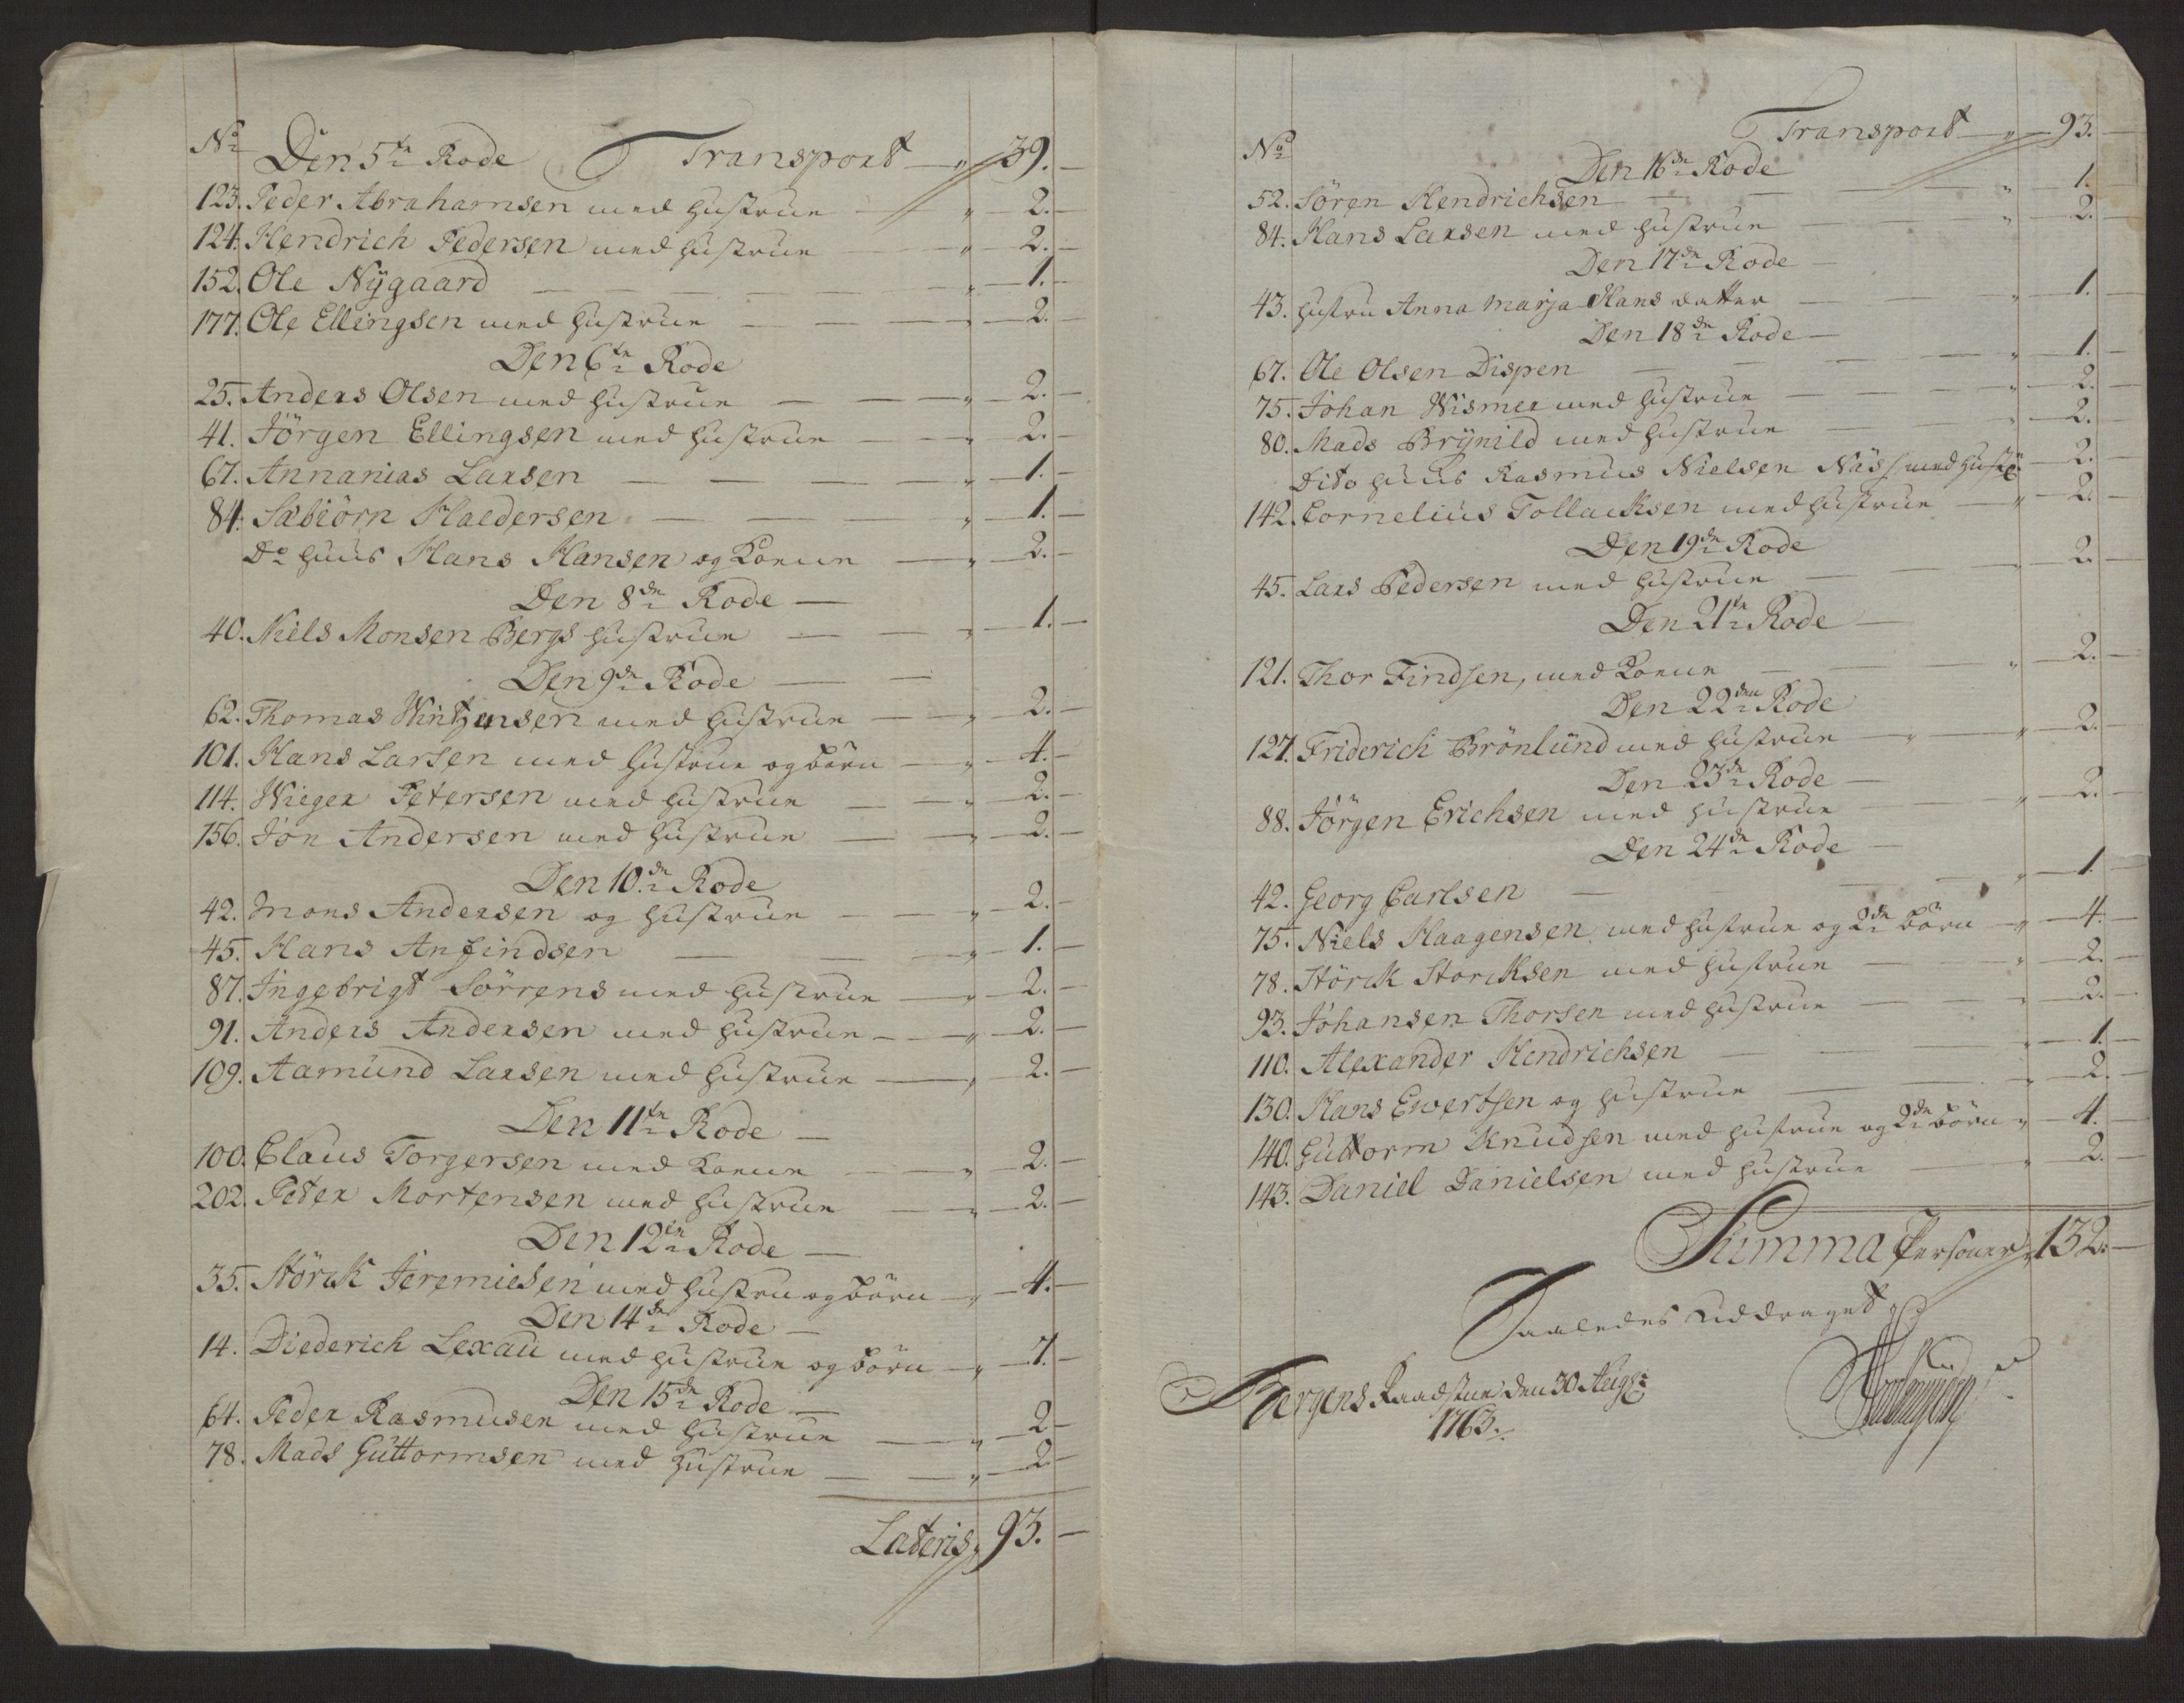 No Den 5te Rode Transport " 39.
123. Peder Abrahamsen med hustrue " 2.
124. Hendrich Pedersen med hustrue " 2.
152. Ole Nÿgaard " 1.
177. Ole Ellingsen med hustrue " 2.
Den 6te Rode
25. Anders Olsen med hustrue " 2.
41. Jörgen Ellingsen med hustrue " 2.
67. Annanias Larsen " 1.
84. Sæbiörn Haldersen " 1.
Do huus Hans Hansen og Konen " 2.
Den 8de Rode
40. Niels Monsen Bergs hustrue " 1.
Den 9de Rode
62. Thomas Wintzensen med hustrue " 2.
101. Hans Larsen med hustrue og børn " 4.
114. Wieger Petersen med hustrue " 2.
156. Jon Andersen med hustrue " 2.
Den 10de Rode
42. Mons Andersen og hustrue " 2.
45. Hans Anfindsen " 1.
87. Ingebrigt Sörrens med hustrue " 2.
91. Anders Andersen med hustrue " 2.
109. Aamund Larsen med hustrue " 2.
Den 11te Rode
100. Claus Torgersen med Konen " 2.
202. Peter Mortensen med hustrue " 2.
Den 12te Rode
35. Störck Jeremiesen med hustru og børn " 4.
Den 14de Rode
14. Diederich Lexau med hustrue og børn " 7.
Den 15de Rode
64. Peder Rasmusen med hustrue " 2
78. Mads Guttormsen med hustrue " 2.
Lateris " 93.
No Transport " 93.
Den 16de Rode
52. Sören Hendrichsen " 1.
84. Hans Larsen med hustrue " 2.
Den 17de Rode
43. hustru Anna Marja Hans datter " 1.
Den 18de Rode
67. Ole Olsen Dispen " 1.
75. Johan Wismer med hustrue " 2.
80. Mads Brÿnild med hustrue " 2.
Dito huus Rasmus Nielsen Näss med hustr: 2.
142. Cornelius Tollacksen med hustrue " 2
Den 19de Rode
45. Lars Pedersen med hustrue " 2
Den 21te Rode
121. Thor Findsen, med Konen " 2.
Den 22den Rode
127. Friderich Brönlund med hustrue " 2.
Den 23de Rode
88. Jörgen Erichsen med hustrue " 2.
Den 24de Rode
42. Georg Carlsen " 1.
75. Niels Haagensen med hustrue og 2de børn " 4.
78. Störck Storcksen med hustrue " 2.
93. Johansen Thorsen med hustrue " 2.
110. Alexander Hendrichsen " 1.
130. Hans Ewertsen og hustrue " 2.
140. Guttorm Knudsen med hustrue og 2de børn " 4.
143. Daniel Danielsen med hustrue " 2.
Summa Personer " 132.
Saaledes uddraget
Bergens Raadstue den 30 Augs:
1763.